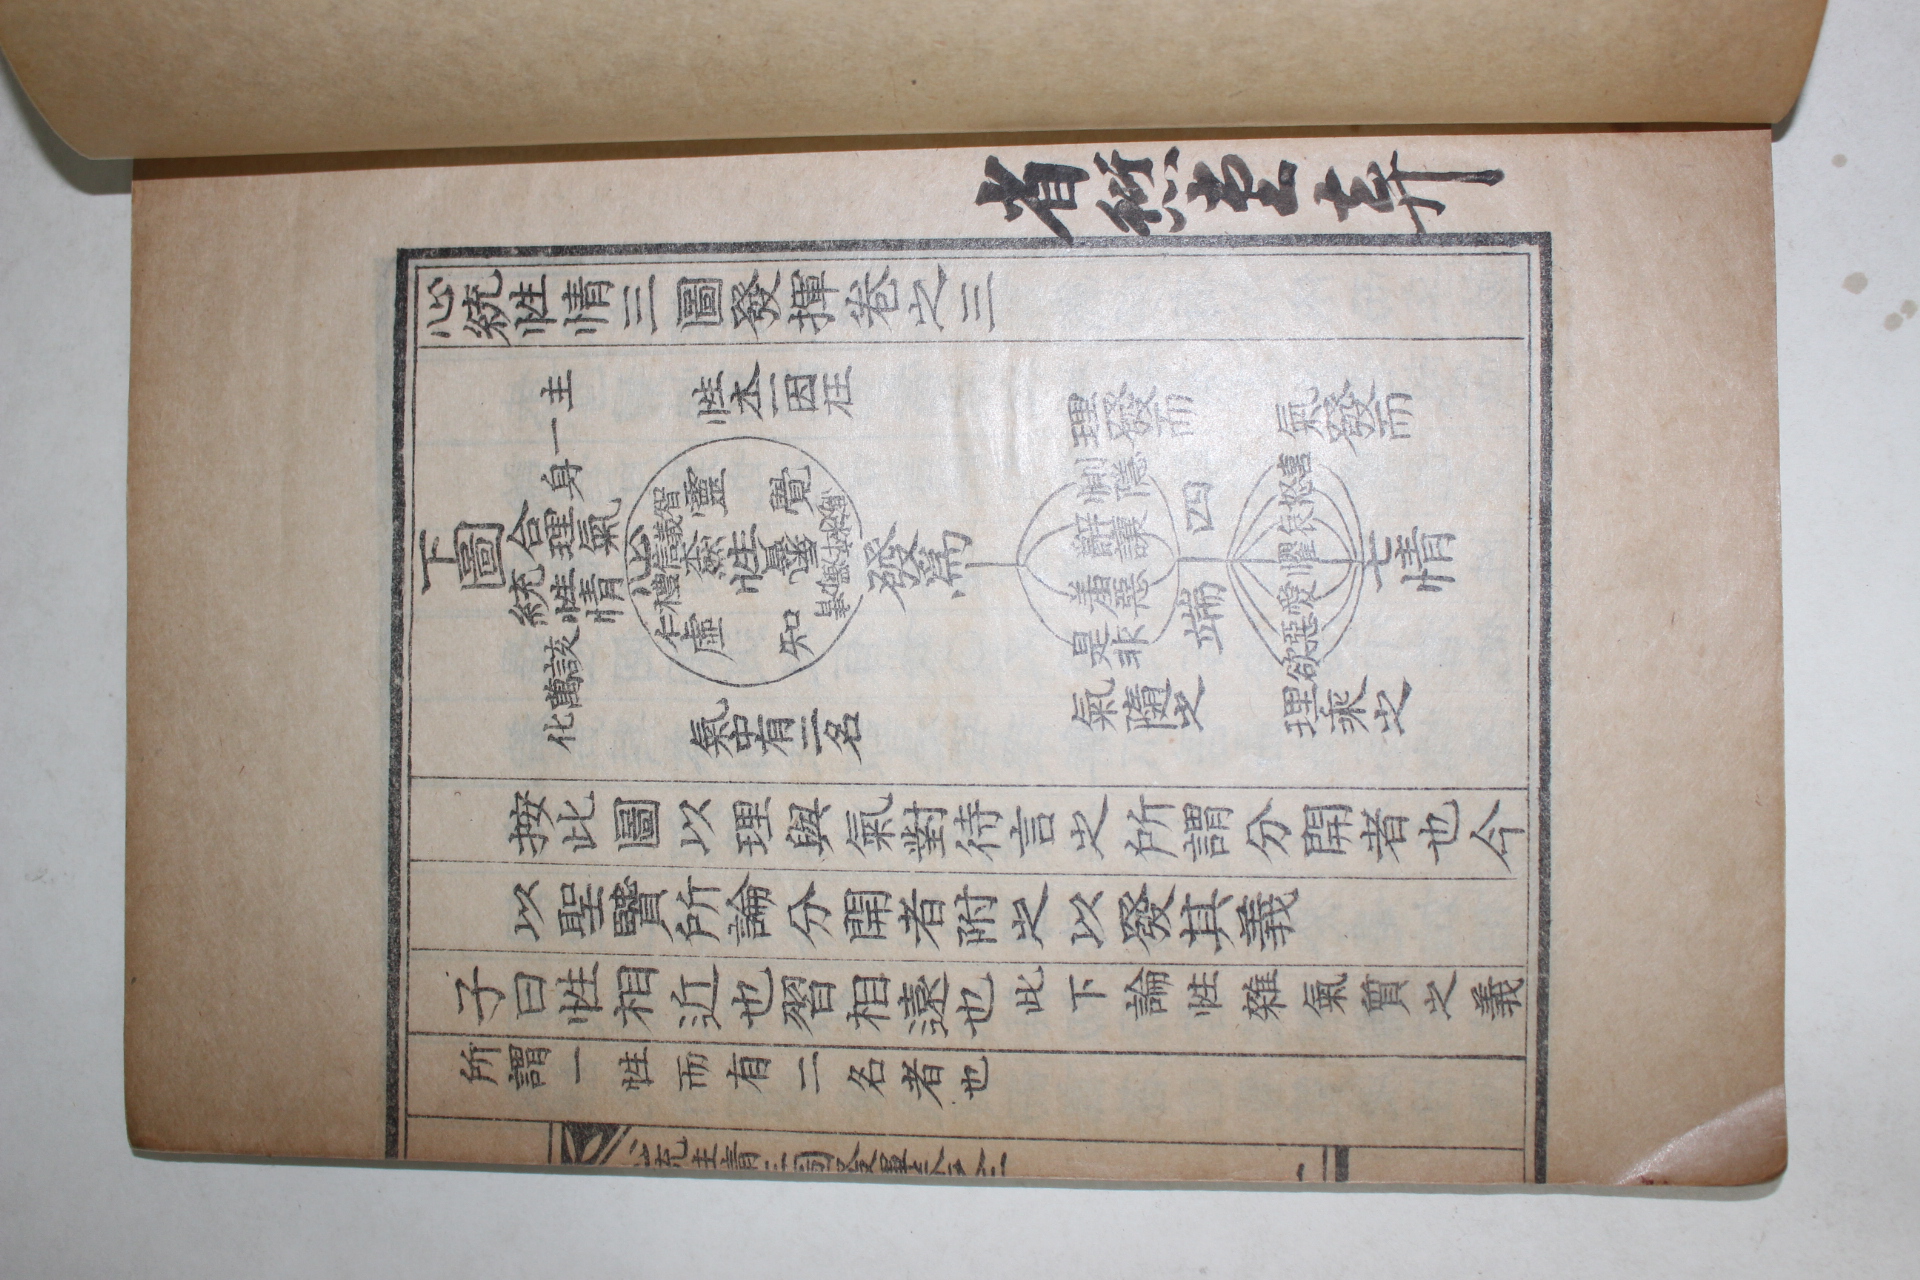 心統性情三圖發揮卷之三
下圖
主一身
該萬化
合理氣
統性情
心
智義信禮仁
虛靈
知覺
本然性
性本一因在
氣中有二名
發爲
惻隱
辭讓
羞惡
是非
四端
理發而
氣隨之
喜怒哀懼愛惡欲
七情
氣發而
理乘之
按此圖以理與氣對待言之所謂分開者也今
以聖贒所論分開者附之以發其義
子曰性相近也習相遠也此下論性雜氣質之義
所謂一性而有二名者也
心統性情三圖發揮卷之三